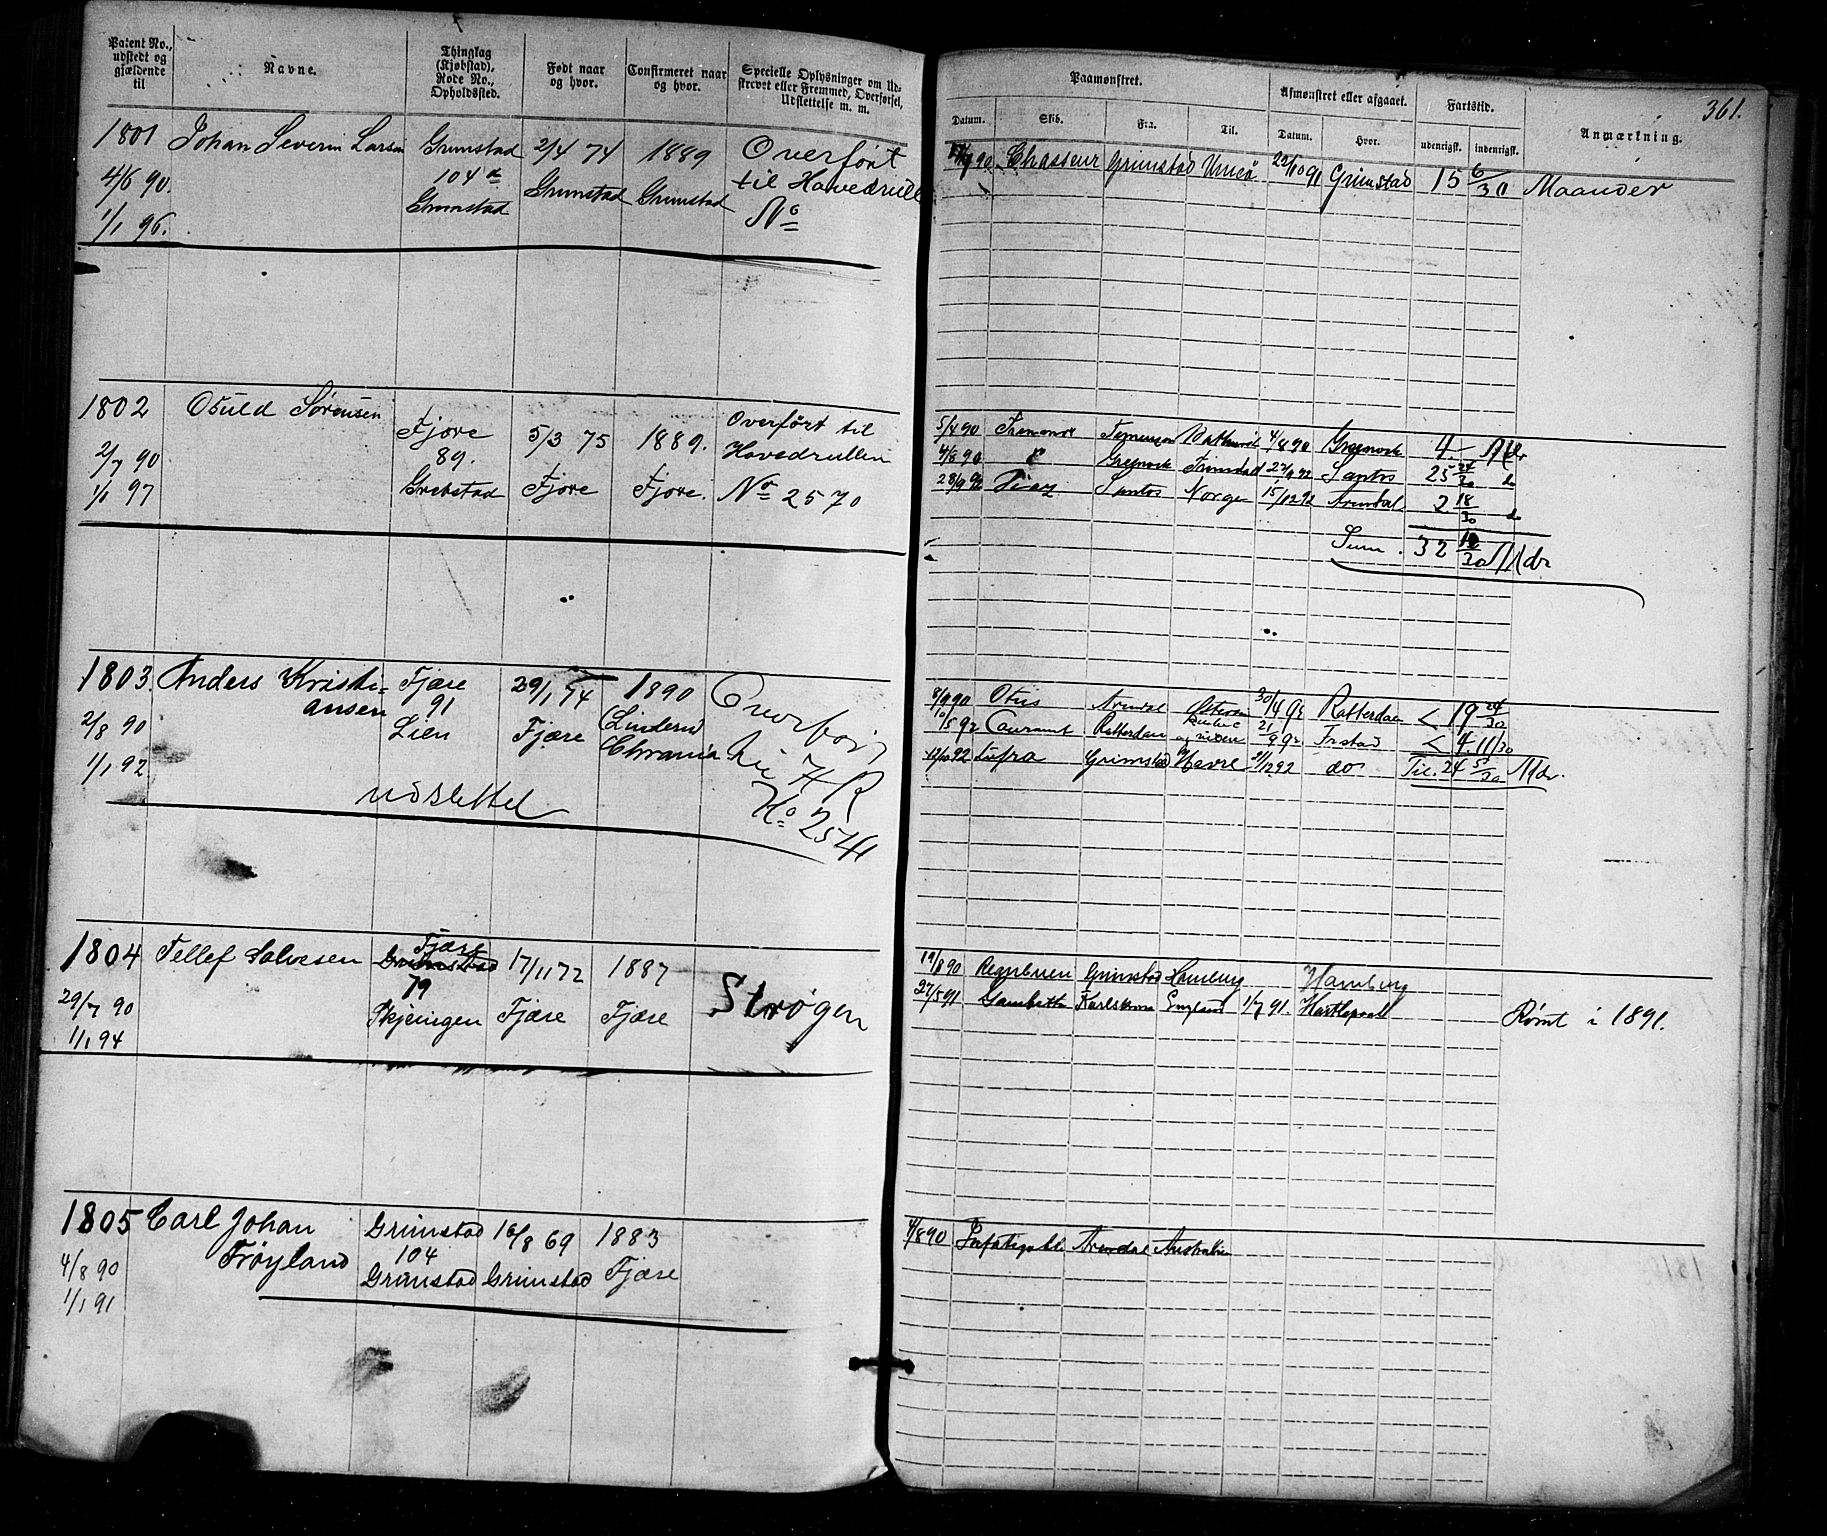 361.
Patent No., udstedt og gjældende til
Navne.
Thinglag (Kjøbstad), Rode No., Opholdssted.
Født naar og hvor.
Confirmeret naar og hvor.
Specielle Oplysninger om Udskrevet eller Fremmed, Overførsel, Udslettelse m. m.
Paamønstret.
Afmønstret eller afgaaet.
Fartstid.
Anmærkning.
Datum. Skib. Fra. Til. Datum. Hvor. udenrigsk. indenrigsk.
1801 Johan Severin Larsen Grimstad 2/4 74 1889 Overført
4/6 90. 104 Grimstad Grimstad til Hovedrulle
1/1 96. Grimstad No
90 Chasseur Grimstad Umeå 22/10 91 Grimstad 15 6/30 Maaneder
1802 Osuld Sørensen Fjære 5/3 75 1889. Overført til
2/7 90 89. Hovedrullen
1/1 97 Grebstad Fjære Fjære. No 2570
5/4 90 4/8 90 Greenock 4 Mdr
4/8 90 Greenock Trinidad Santos 25 24/30 do
28/9 92 Santos Norge 15/12 92 Arendal 2 18/30 do
Sum. 32 12/30 Mdr
1803 Anders Kristi= Fjære 29/1 74 1890 Overført
ansen 91
2/8 90 Lien Fjære Christiania H R
1/1 92 No 2544
udslettet
8/9 90 Otus Arendal 30/4 92 Rotterdam 19 24/30
10/5 92 Courant Rotterdam 21/9 92 Frstad 4. 11/30
12/10 92 Grimstad Havre 21/12 92 do Til. 24 5/30 Mdr.
1804 Tellef Salvesen Fjære 17/11 72 1887
Grimstad
29/7 90 79 Strøgen
1/1 94 Skjeringen Fjære Fjære
19/8 90 Grimstad Hamburg Hamburg
27/5 91 Gambetta Karlskrona England 1/7 91. Hartlepool
Rømt i 1891.
1805 Carl Johan Grimstad 16/8 69 1883
4/8 90 Frøyland 104
1/1 91 Grimstad Grimstad Fjære
4/8 90 Arendal Australien